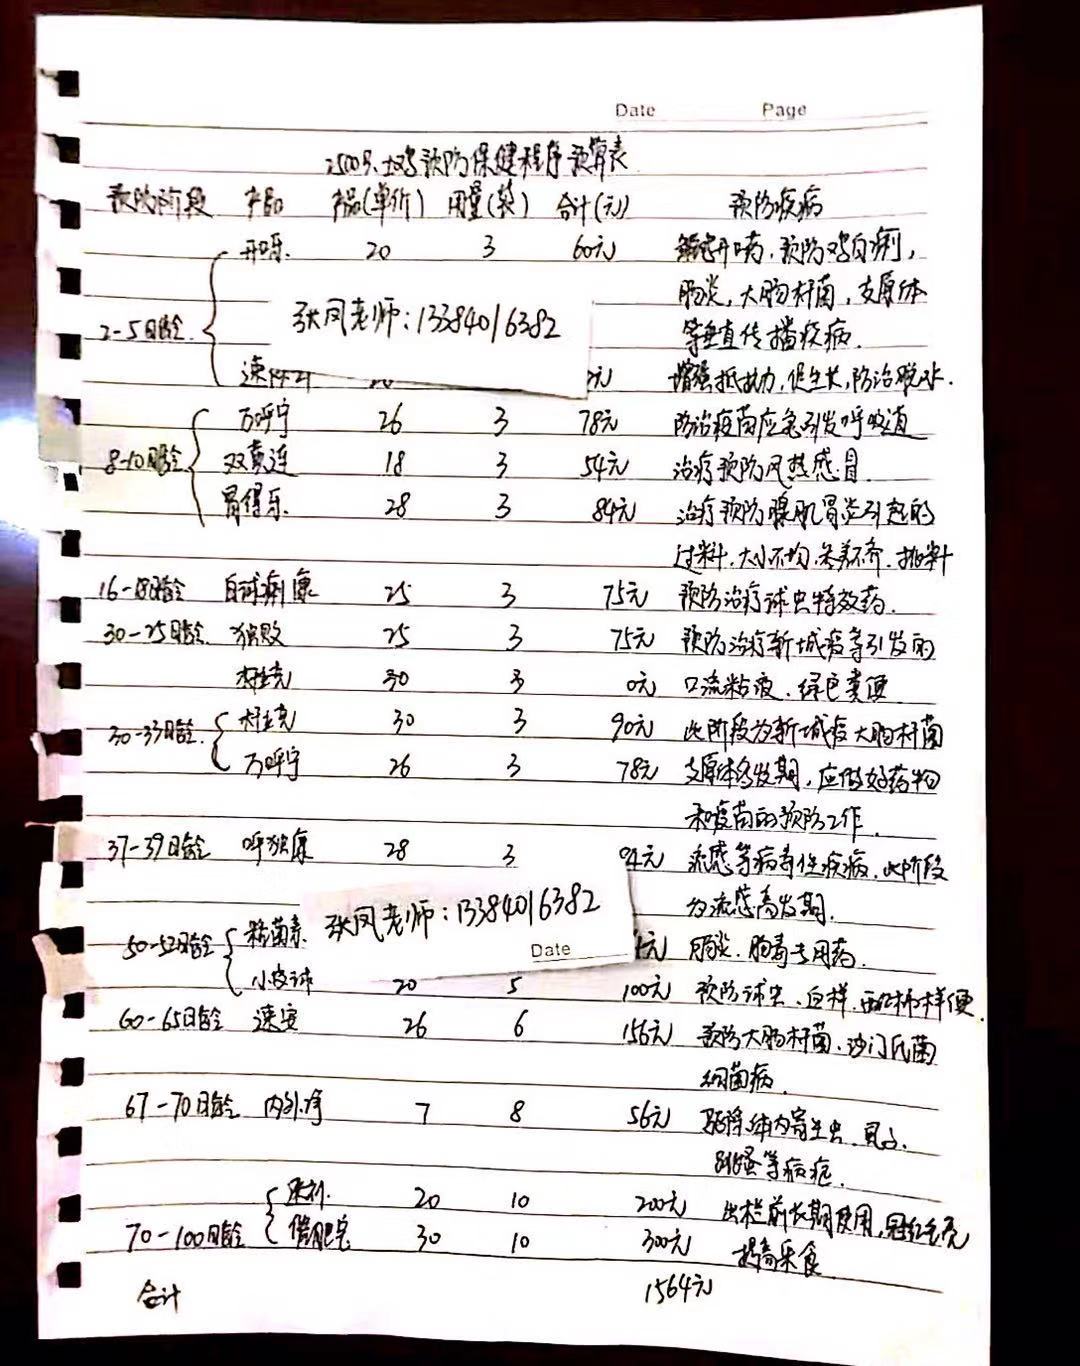 Date Page
2500只土鸡预防保健程序预算表
预防阶段 产品 产品(单价) 用量(袋) 合计(元) 预防疾病
开呼乐 20 3 60元 雏鸡开口药,预防鸡白痢,
肠炎,大肠杆菌,支原体
张凤老师:13384016382
2-5日龄 等垂直传播疾病.
速 元 增强抵抗力,促生长,防治脱水.
万呼宁 26 3 78元 防治疫苗应急引发呼吸道
8-10日龄 双黄连 18 3 54元 治疗预防风热感冒.
胃得乐 28 3 84元 治疗预防腺肌胃炎引起的
过料.大小不均.长势不齐.挑料
16-18日龄 白球痢康 25 3 75元 预防治疗球虫特效药.
30-25日龄 独败 25 3 75元 预防治疗新城疫等引发的
杆壮克 30 3 0元 口流粘液.绿色粪便
30-33日龄 杆壮克 30 3 90元 此阶段为新城疫大肠杆菌
万呼宁 26 3 78元 支原体多发期,应做好药物
和疫苗的预防工作.
37-39日龄 呼独康 28 3 84元 流感等病毒性疾病.此阶段
为流感高发期.
张凤老师:13384016382
Date
50-52日龄 粘菌素 元 肠炎.肠毒专用药.
小安球 20 5 100元 预防球虫.白样.西红柿样便.
60-65日龄 速安 26 6 156元 预防大肠杆菌.沙门氏菌
细菌病.
67-70日龄 内外净 7 8 56元 驱除体内寄生虫.虱子.
跳蚤等病症.
20 10 200元 出栏前长期使用,冠红毛亮
70-100日龄 催肥宝 30 10 300元 提高采食
合计 1564元